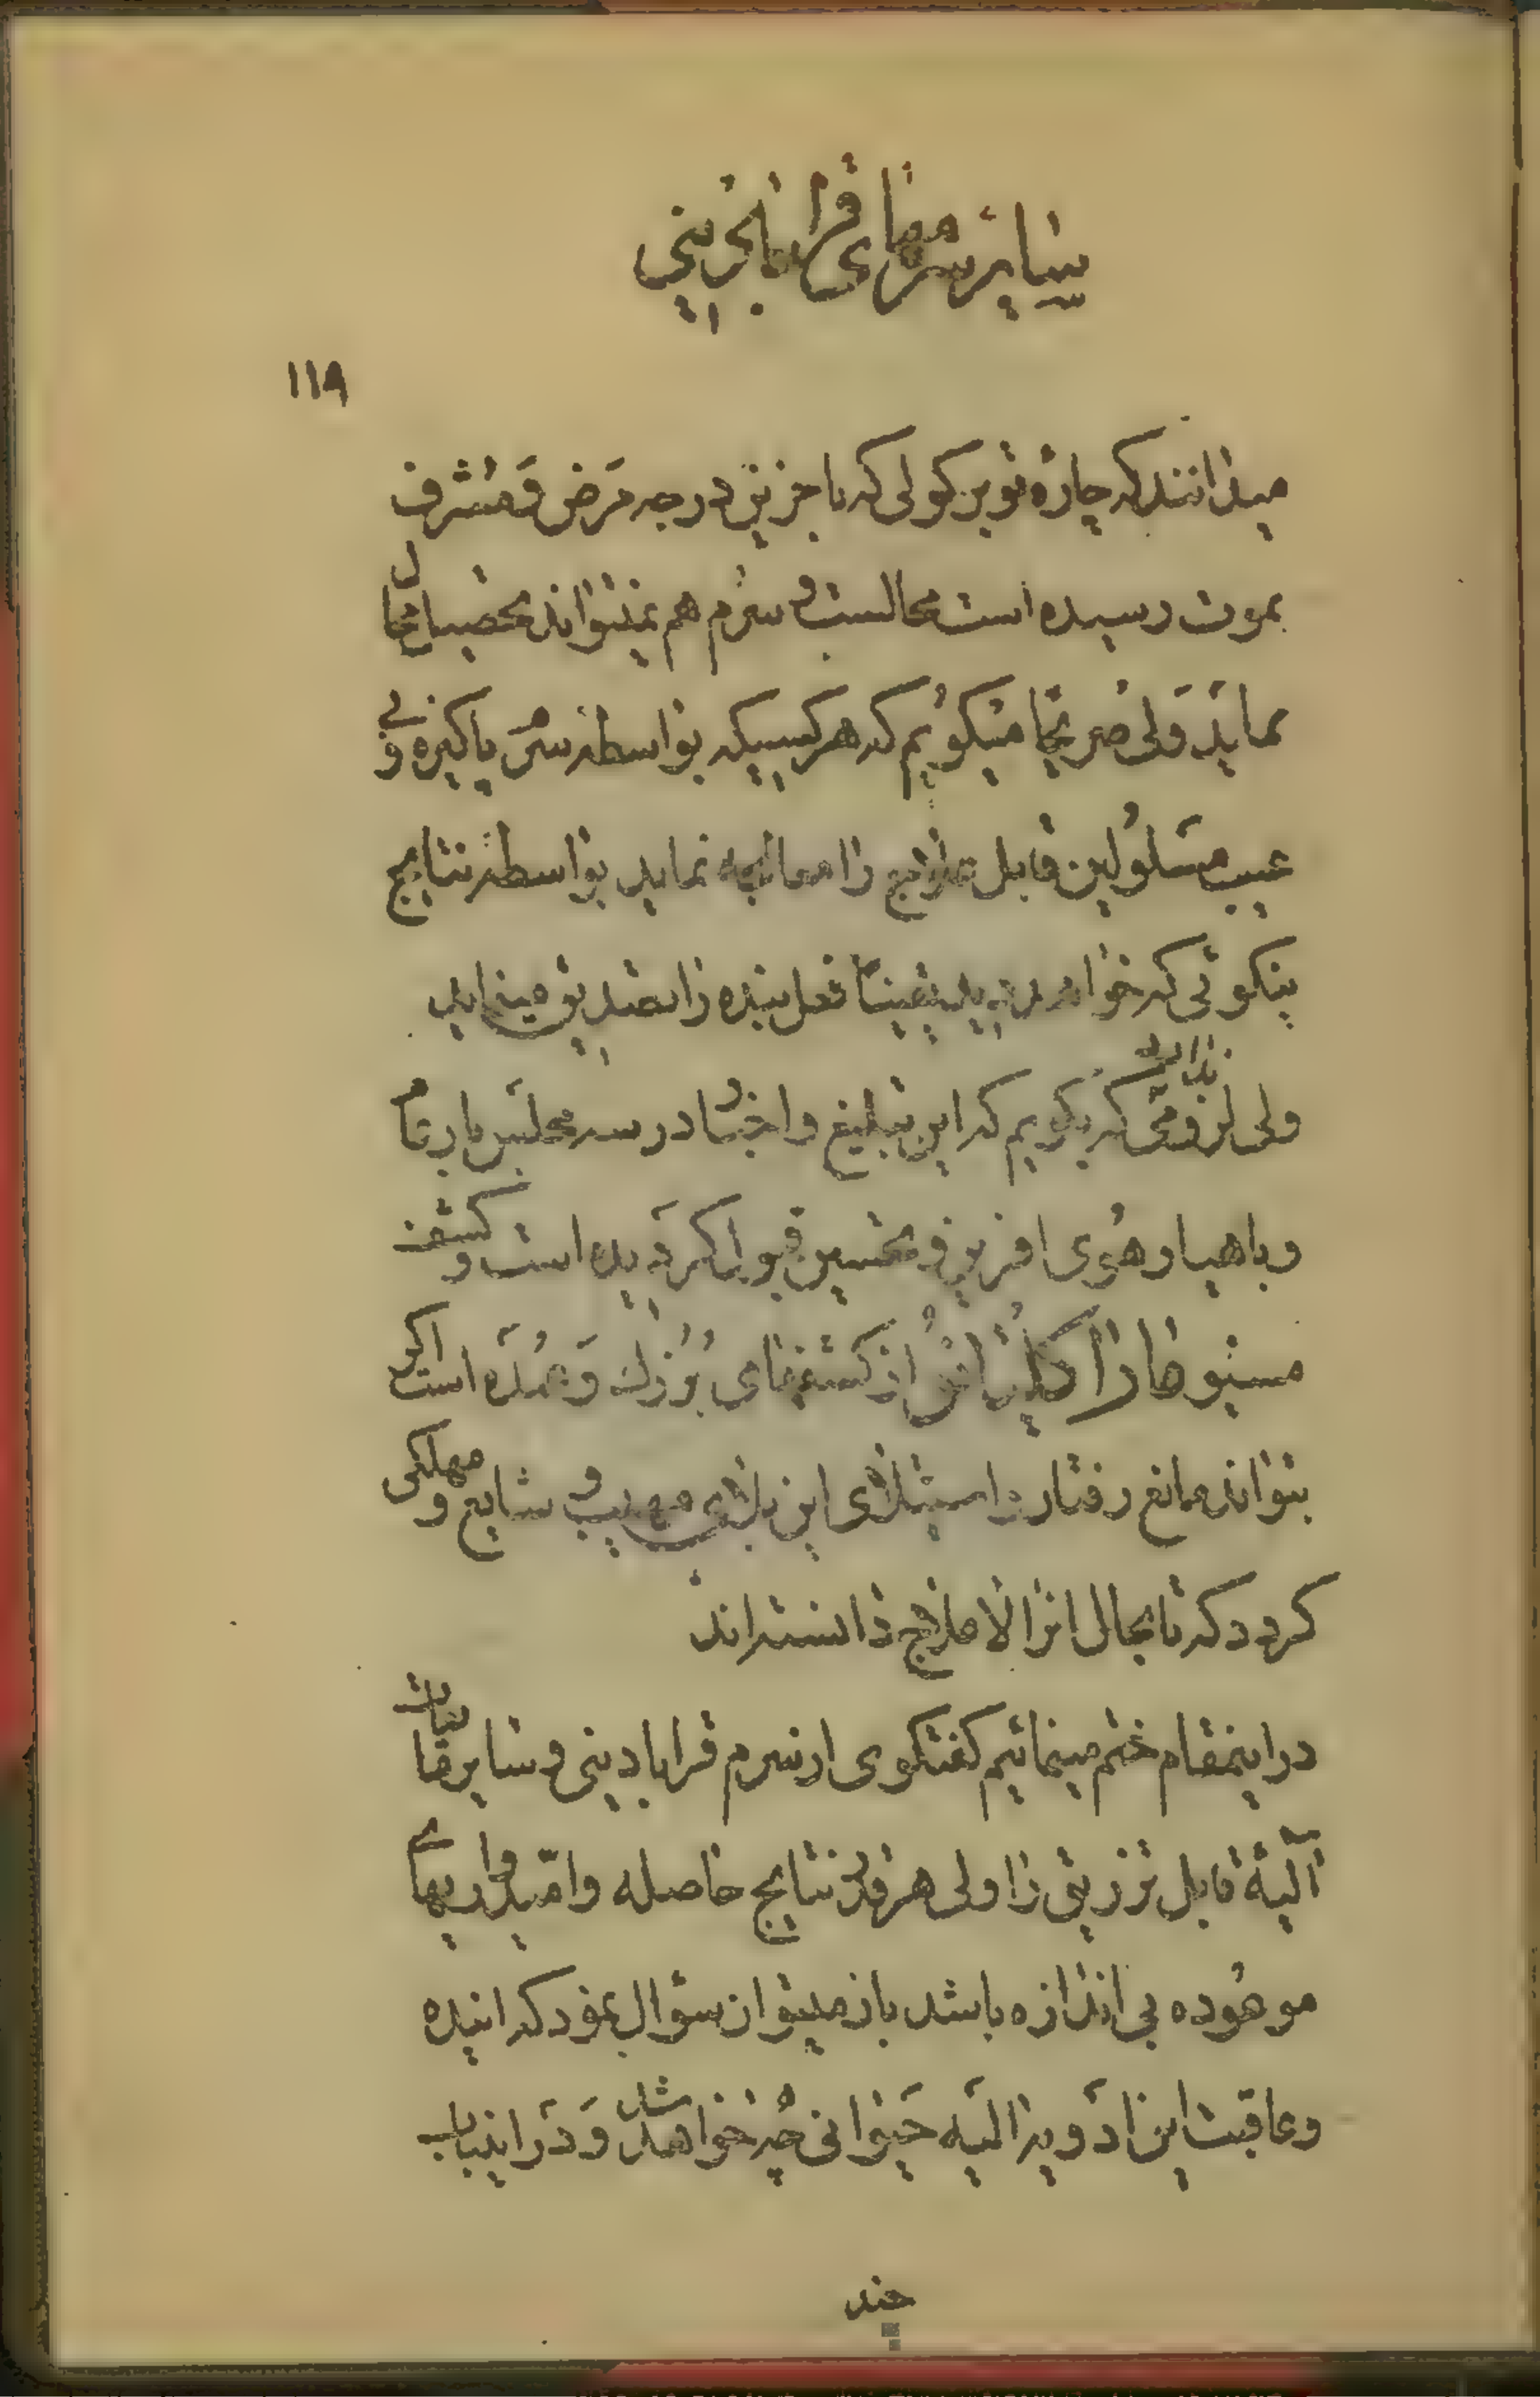 سایر سرمهای قرابادینی
۱۱۹
میدانند که چاره توبرکولی که باخرین درجه مرض و مشرف
بموت رسیده است محالست و سرم هم نمیتواند تحصیل محال
نماید ولی صریحا میگویم که هر کسیکه بواسطه سرم پاکیزه و بی
عیب مسلولین قابل علاج را معالجه نماید بواسطه نتایج
نیکوئی که خواهد دید یقینا فعل بنده را تصدیق مینماید
ولی لزومی ندارد که بگویم که این تبلیغ و اخبار در سه مجلس بارقام
و باهیاهوی افرین و تحسین قبول گردیده است و کشف
مسیو از کشفهای بزرگ و عمده است اگر
بتواند مانع رفتار و استیلای این بلای مهیب و شایع و مهلکی
گردد که تا بحال انرا لاعلاج دانسته‌اند
در اینمقام ختم مینمائیم گفتگوی از سرم قرابادینی و سایر مایعات
آلیهٔ قابل تزریق را ولی هر قدر نتایج حاصله و امیدواریهای
موهوده بی اندازه باشد باز میتوان سؤال نمود که اینده
و عاقبت این ادویه الیه حیوانی چه خواهد شد و در اینباب
چند